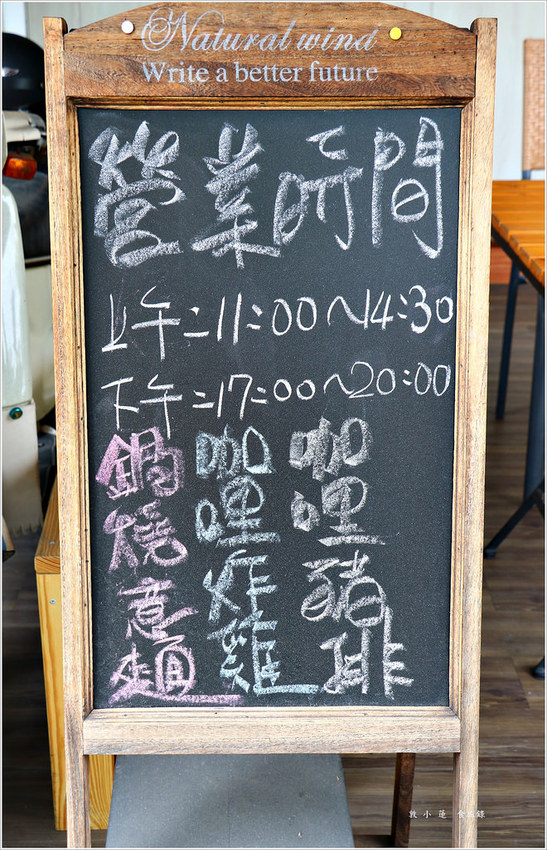 Natural wind
Write a better future
營業時間
上午:11:00~14:30
下午:17:00~20:00
鍋燒意麵
咖哩炸雞
咖哩豬排